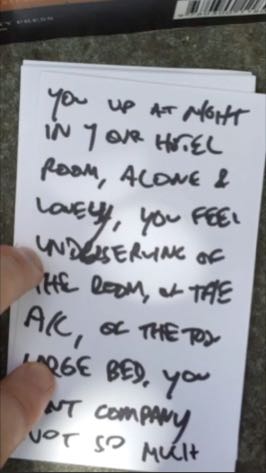 TY PRESS
YOU UP AT NIGHT
IN YOUR HOTEL
ROOM, ALONE &
LONELY, YOU FEEL
UNDESERVING OF
THE ROOM, OF THE
A/C, OF THE TOO
LARGE BED. YOU
NT COMPANY
NOT SO MUCH